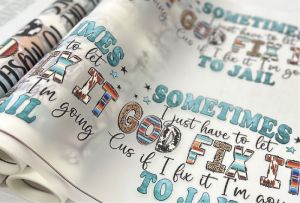 SOMETIMES
I just have to let
GOD FIX IT
Cus if I fix it I'm going
TO JAIL
SOMETIMES
just have to let
GOD FIX IT
Cus if I fix it I'm
TO JAIL
TIMES
to let
FIX IT
I'm going
JAIL